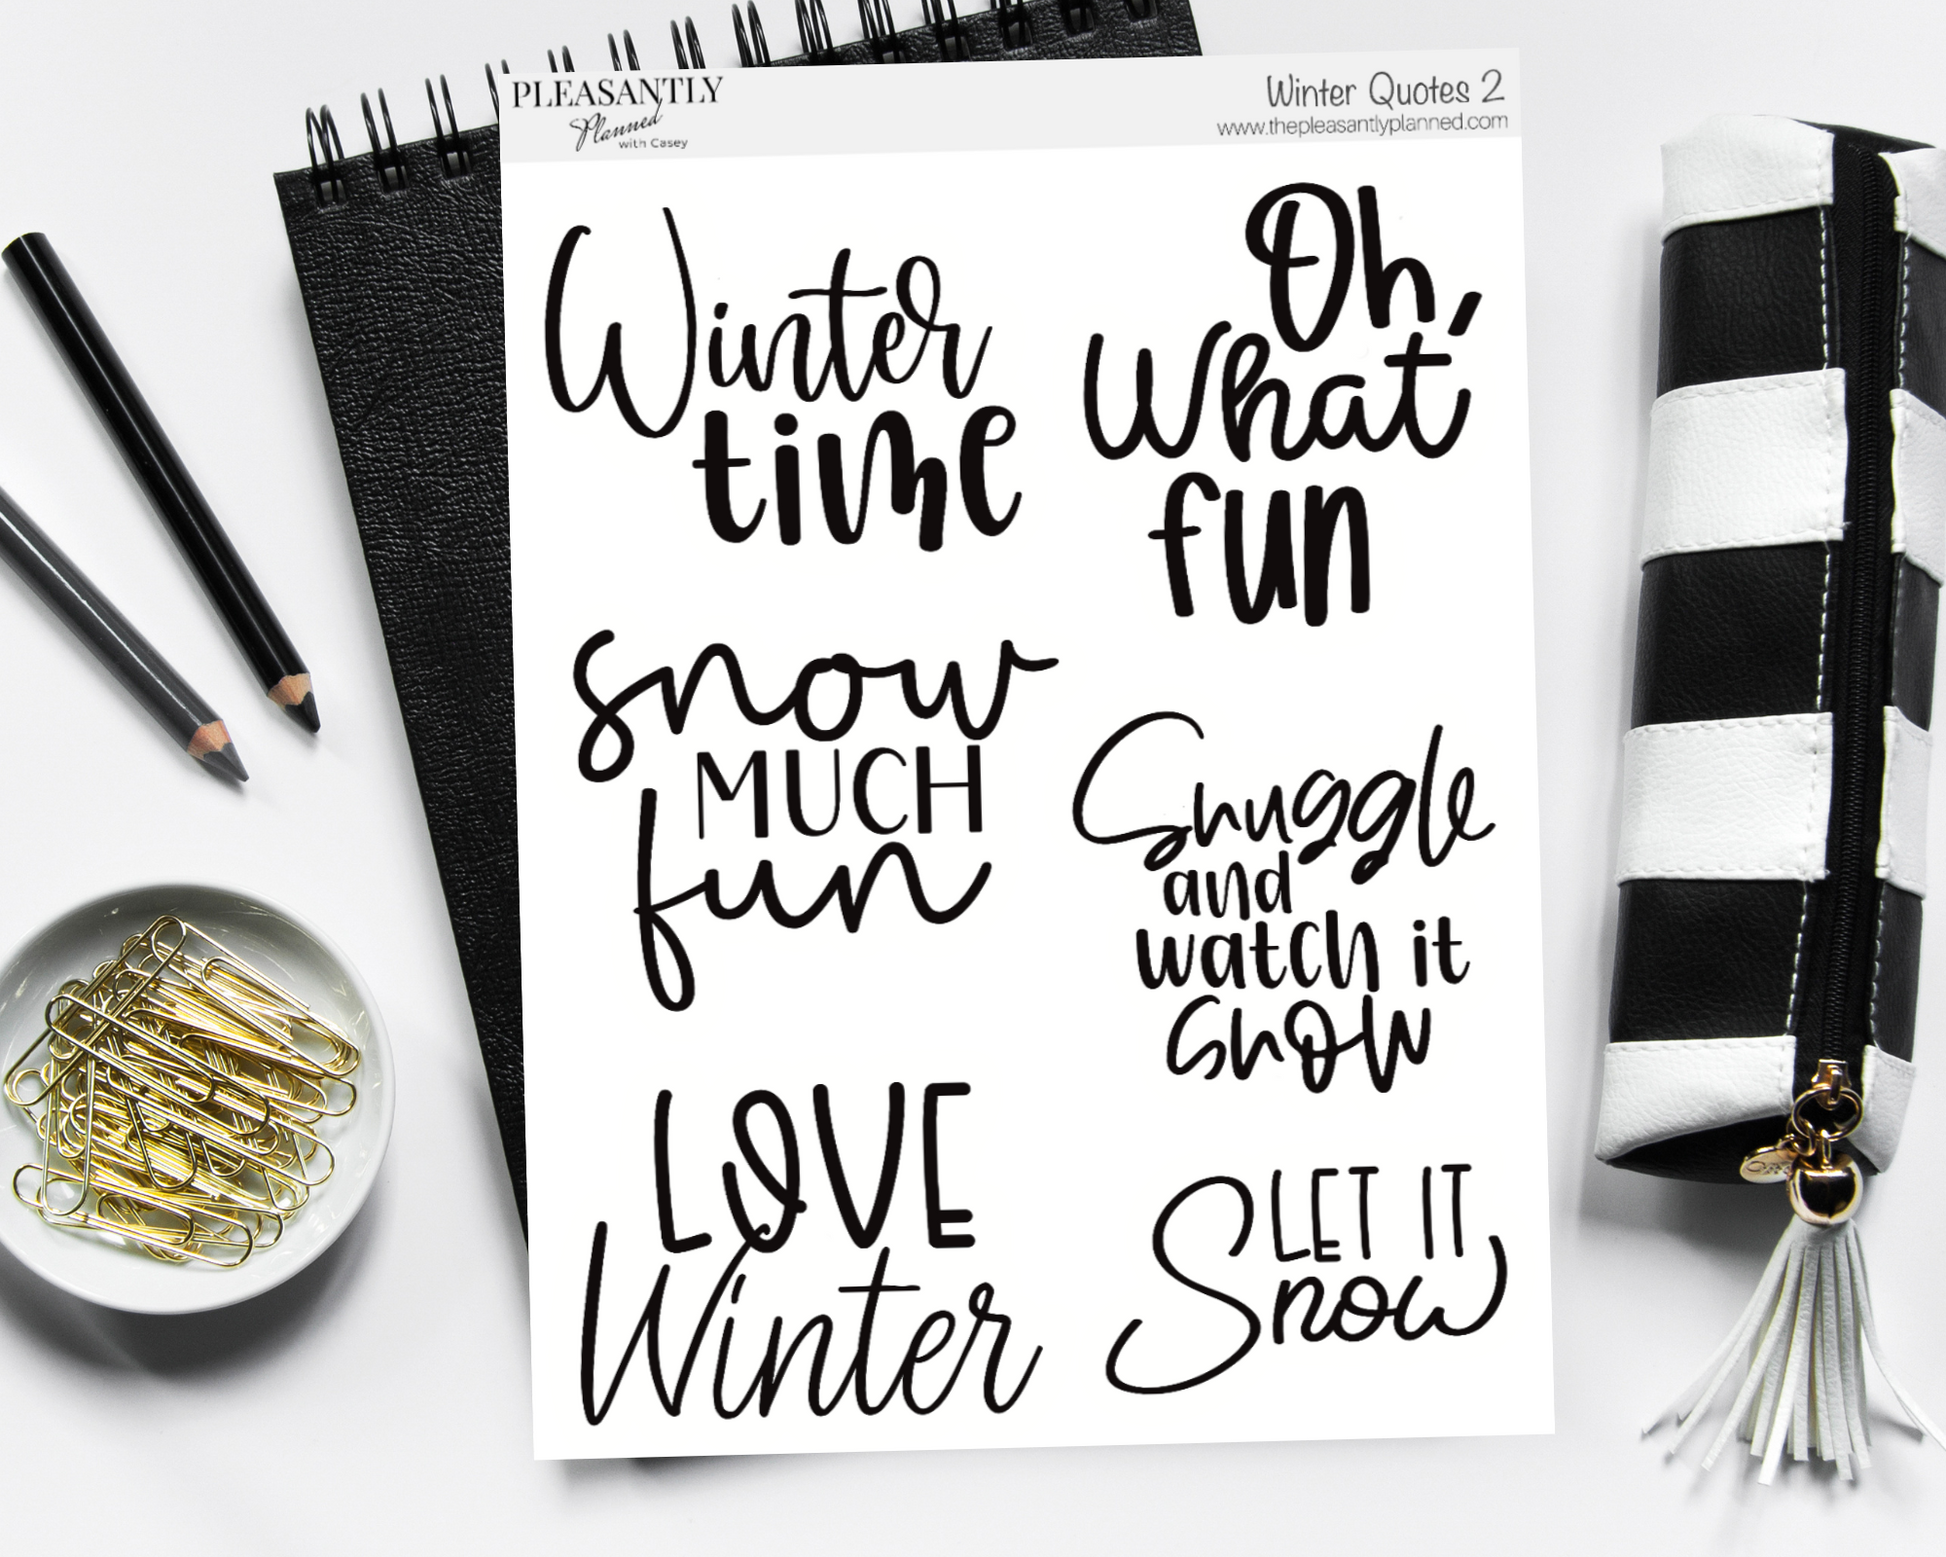 PLEASANTLY
Planned
with Casey
Winter Quotes 2
www.thepleasantlyplanned.com
Winter
time
Oh,
what
fun
snow
MUCH
fun
Snuggle
and
watch it
snow
LOVE
Winter
LET IT
Snow